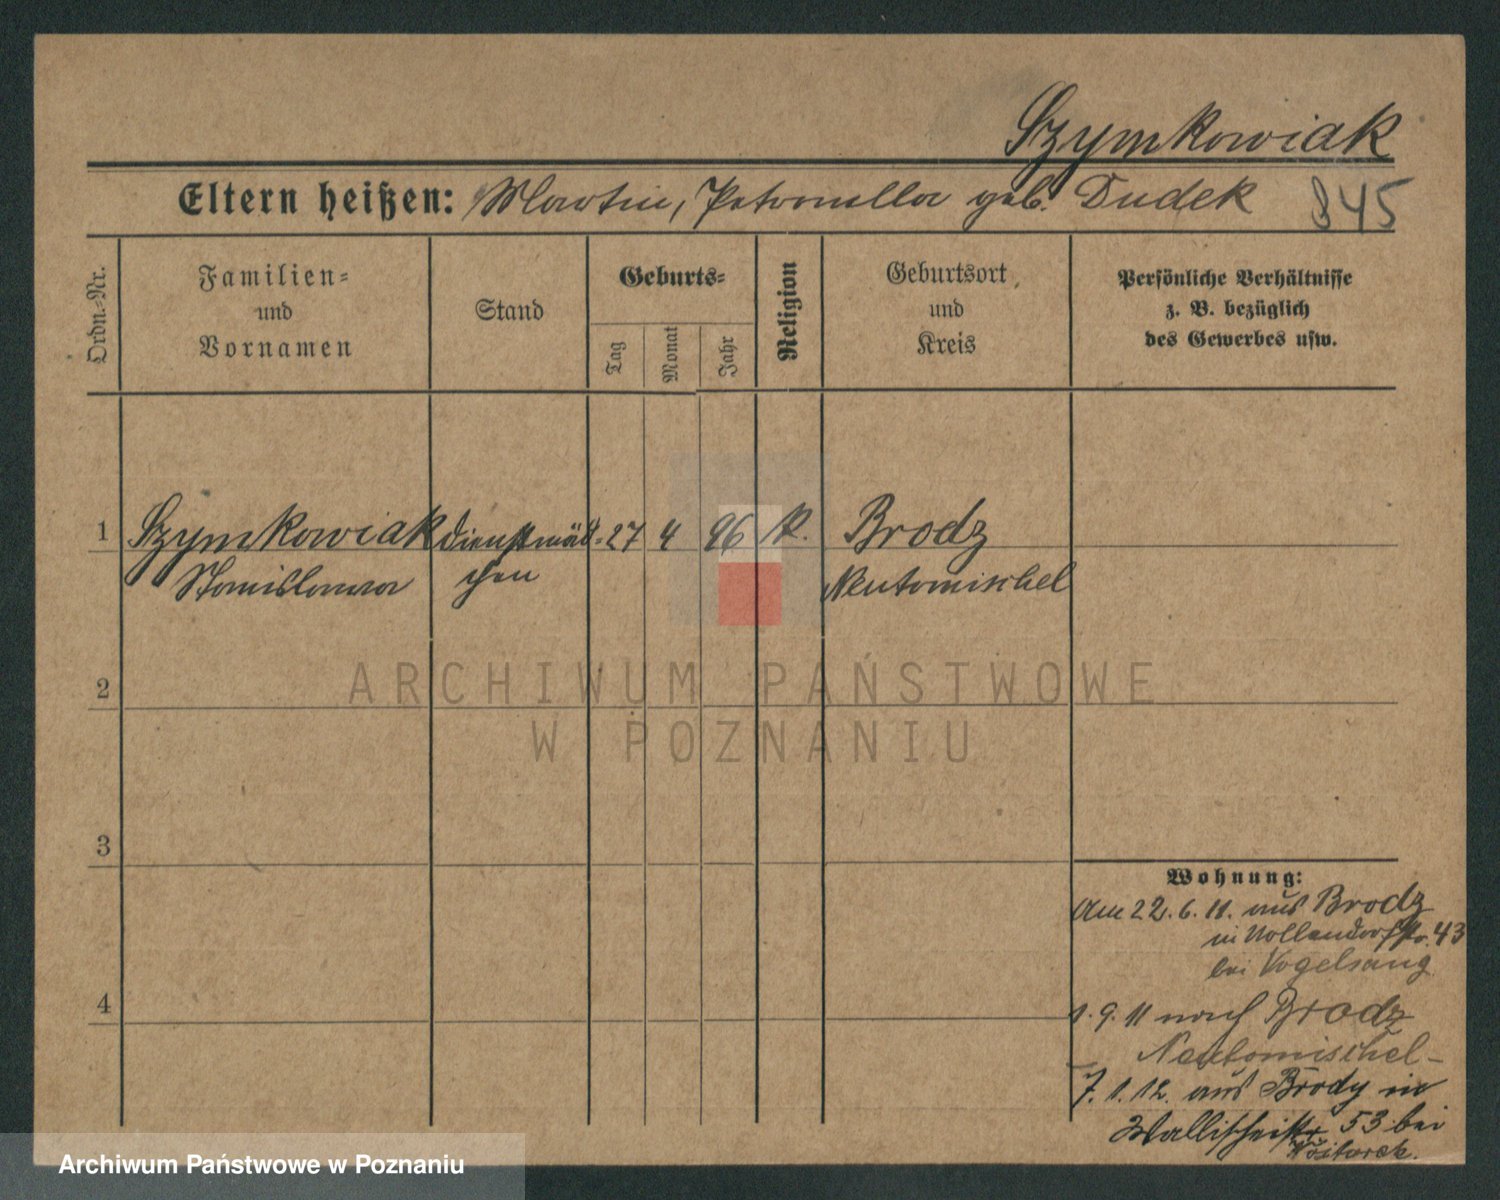 Szymkowiak
Eltern heißen: Martin, Petronella geb. Dudek 845
Ordn.-Nr.
Familien-
und
Vornamen
Stand
Geburts-
Tag
Monat
Jahr
Religion
Geburtsort
und
Kreis
Persönliche Verhältnisse
z. B. bezüglich
des Gewerbes usw.
1 Szymkowiak Dienstmäd- 27 4 96 k. Brodz
Stanislawa chen Neutomischel
2
3
4
Wohnung:
Am 22.6.11. aus Brodz
in Nollendorfstr. 43
bei Vogelsang
1.9.11 nach Brodz
Neutomischel-
7.1.12. aus Brody in
Wallischeistr 53 bei
ARCHIWUM PAŃSTWOWE
W POZNANIU
Archiwum Państwowe w Poznaniu